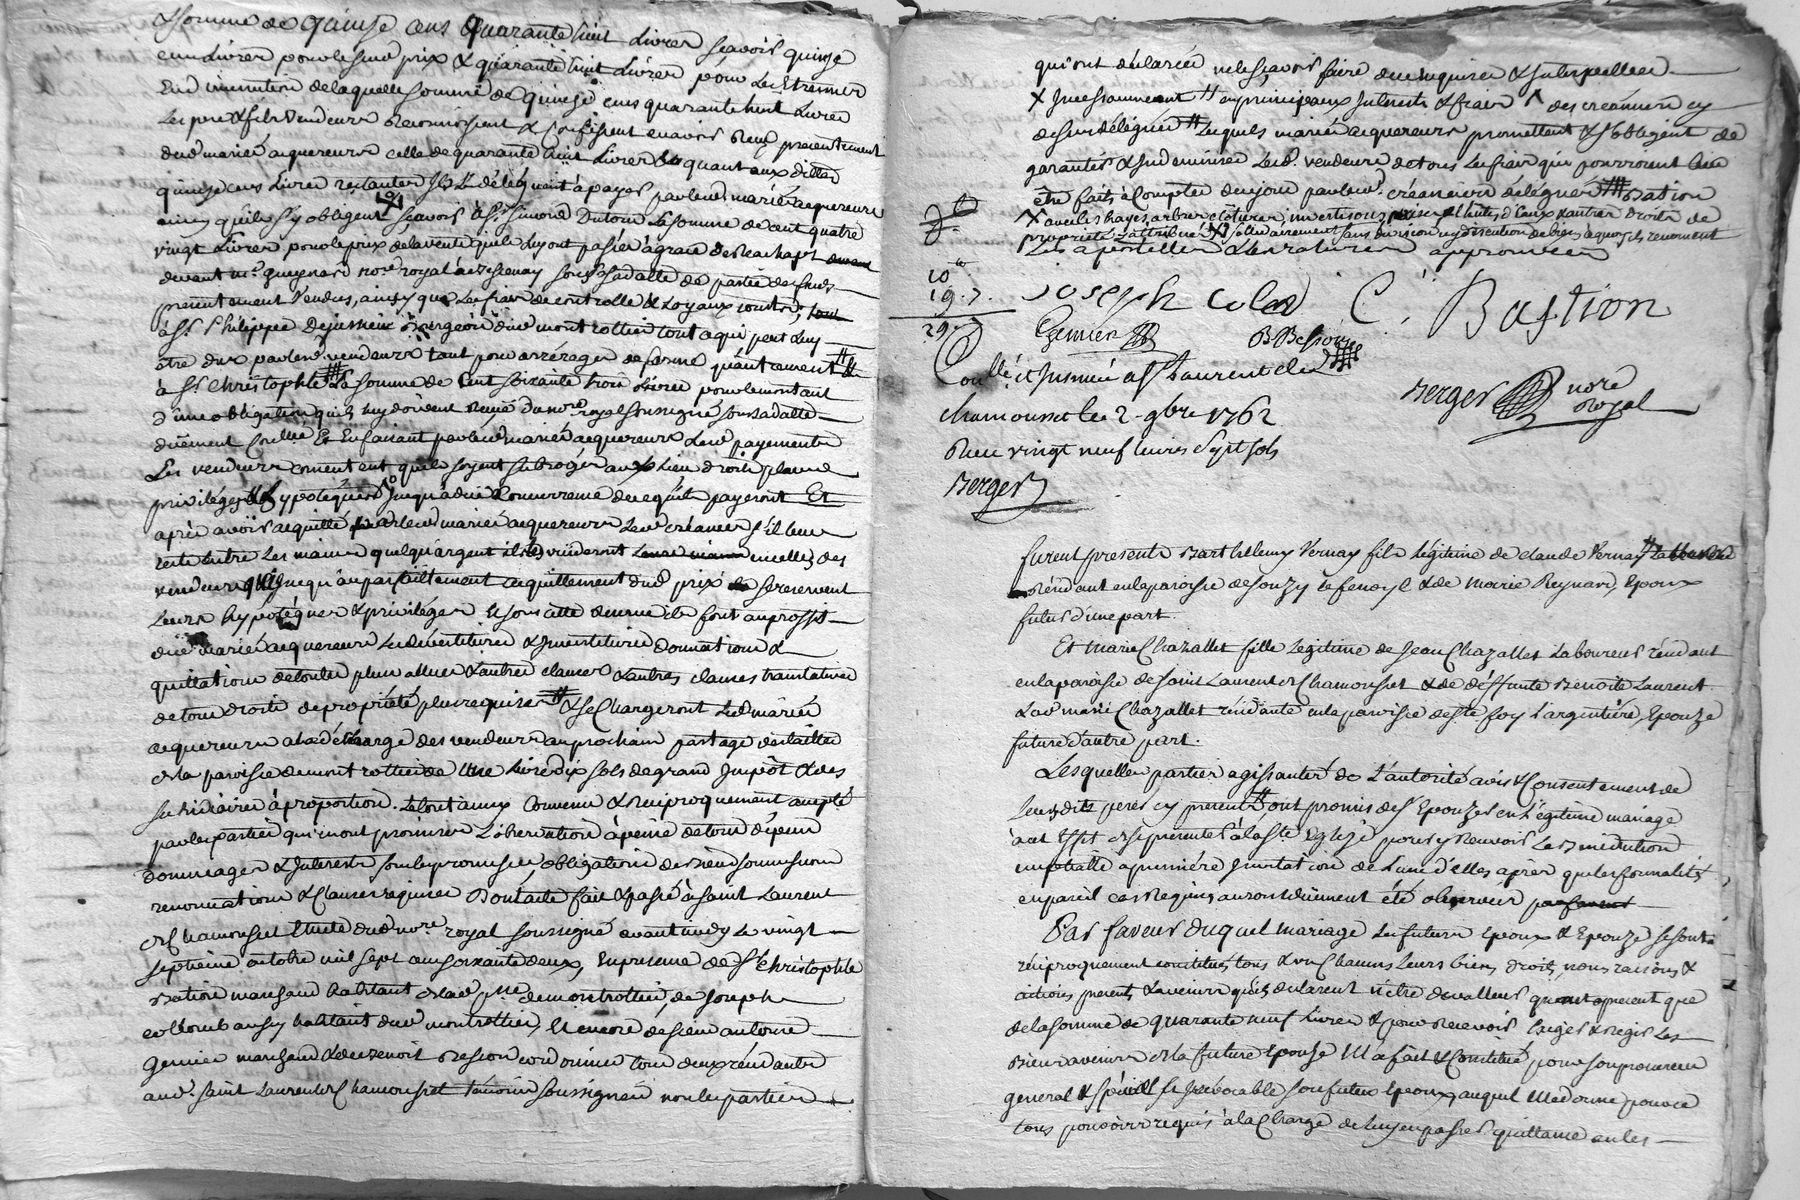 somme de quinze cens quarante huit Livres scavoir quinze
cens Livres pour lesusd prix & quarante huit Livres pour les Etrennes
En immition de laquelle somme de quinze cens quarante huit Livres
les pere & fils vendeurs reconnoissent & confessent en avoir receu presentement
dud mariés acquereurs celle de quarante huit Livres & quant aux dittes
quinze cens Livres restantes Ils deleguent à payer par lesd mariés acquereurs
ainsy qu'ils s'y obligent scavoir à Sr Simond Dutour La somme de cent quatre
vingt Livres pour le prix de la vente qu'ils luy ont passée à grace de reachapt
devant mr guignard nore royal à sous sa datte de partie des fonds
presentement vendus, ainsy que les frais de controlle & Loyaux couts,
à Sr Philippe Dejussieu Bourgeois dud montrottier tout ce qui peut luy
être dus par lesd vendeurs tant pour arrérages de ferme qu'autrement &
à Sr christophle La somme de cent soixante trois Livres pour le montant
d'une obligation qu'ils luy doivent receue du nore royal soussigné sous sa datte
duement Coullée Et En faisant par lesd mariés acquereurs Led payements
Les vendeurs consentent qu'ils soyent subrogés aux Lieu droits place
privileges & hypoteques jusqu'à due Concurrence de ce qu'ils payeront Et
après avoir acquitté par lesd mariés acquereurs Lesd créances s'il leur
reste entre Les mains quelqu'argent ils le vuideront en celles des
vendeurs qui jusqu'au parfait acquittement dud prix se reservent
Leurs hypoteques & privileges Et sous cette reserve ils font au proffit
dud mariés acquereurs Les devestitures & investitures donnations &
quittations de toutes plus values & autres clauses & autres clauses translatives
de tous droits de propriété plus requises & se Chargeront Lesd mariés
acquereurs à la décharge des vendeurs au prochain partage des tailles
de la paroisse de montrottier de Une Livre dix sols de grand Impôt & des
subsidiaires à proportion. Le tout ainsy Convenu & reciproquement accepté
par les parties qui en ont promis L'observation à peine de tous dépens
dommages & Interests sous les promesses obligations de biens soumissions
renonciations & Clauses requises Dont acte fait & passé à saint Laurent
de Chamousset Etude dud nore royal soussigné avant midy Le vingt
septieme octobre mil sept cens soixante deux, En presence de Sr Christophle
Bation marchand habitant de lad psse de montrottier, de Joseph
colomb aussy habitant dud montrottier, Et encore de sieur antoine
Gernier marchand & de benoit Besson cordonnier tous deux résidants
aud saint Laurent de Chamousset temoins soussignés non les parties
qui ont declarée ne le scavoir faire de ce enquises & Interpellées
X Incessamment # en principeaux Interests & frais ^ des creanciers cy
dessus délégués # Lesquels mariés acquereurs promettent & s'obligent de
garantir & Indemniser Lesd. vendeurs de tous Les frais qui pourroient
être faits à compter de ce jour par lesd. créanciers délégués # Bation
X avec les hayes, arbres clotures, investisons, prises & chutes d'Eaux & autres droits de
proprieté & attribués solidairement sans division ny discution de biens à quoy ils renoncent
Les apostilles & les ratures approuvées
10
19. 7.
29. 7
Joseph Colon C. Bastion
Gernier BBesson
Berger nore royal
Conllé & Insinué à St Laurent de
chamousset le 2. 9bre 1762
Receu vingt neuf livres Sept sols
Berger
furent presents Barthelemy Vernay fils légitime de claude Vernay
résidant en la paroisse de souzy Le fenoyl & de Marie Reynard, Epoux
futur d'une part.
Et marie Chazallet fille Legitime de Jean Chazallet Laboureur résidant
en la paroisse de saint Laurent de Chamousset & de déffunte Benoite Laurent
Lad marie Chazallet résidante en la paroisse de Ste foy L'argentière, Epouze
future d'autre part.
Lesquelles parties agissantes de L'autorité avis & Consentement de
leursdits peres cy presents #, ont promis de s'Epouzer en Légitime mariage
à cet effet de se presenter à la Ste Eglize pour y recevoir La Benediction
nuptialle à premiére Invitation de L'une d'elles, après que les formalités
en pareil cas requises auront duement été observées
Par faveur duquel mariage Les futurs Epoux & Epouze se sont
réciproquement constitués tous & un chacuns Leurs biens, droits, noms raisons &
actions presents & avenirs qu'ils declarent n'être de valleur quant à present que
de la somme de quarante neuf Livres & pour recevoir Exiger & regir Les
Biens avenirs de la future Epouse Elle a fait & Constitué pour son procureur
general & special & Irrévocable son futur Epoux, auquel Elle donne pouvoir
tous pouvoirs requis à la Charge de luy en passer quittance en les